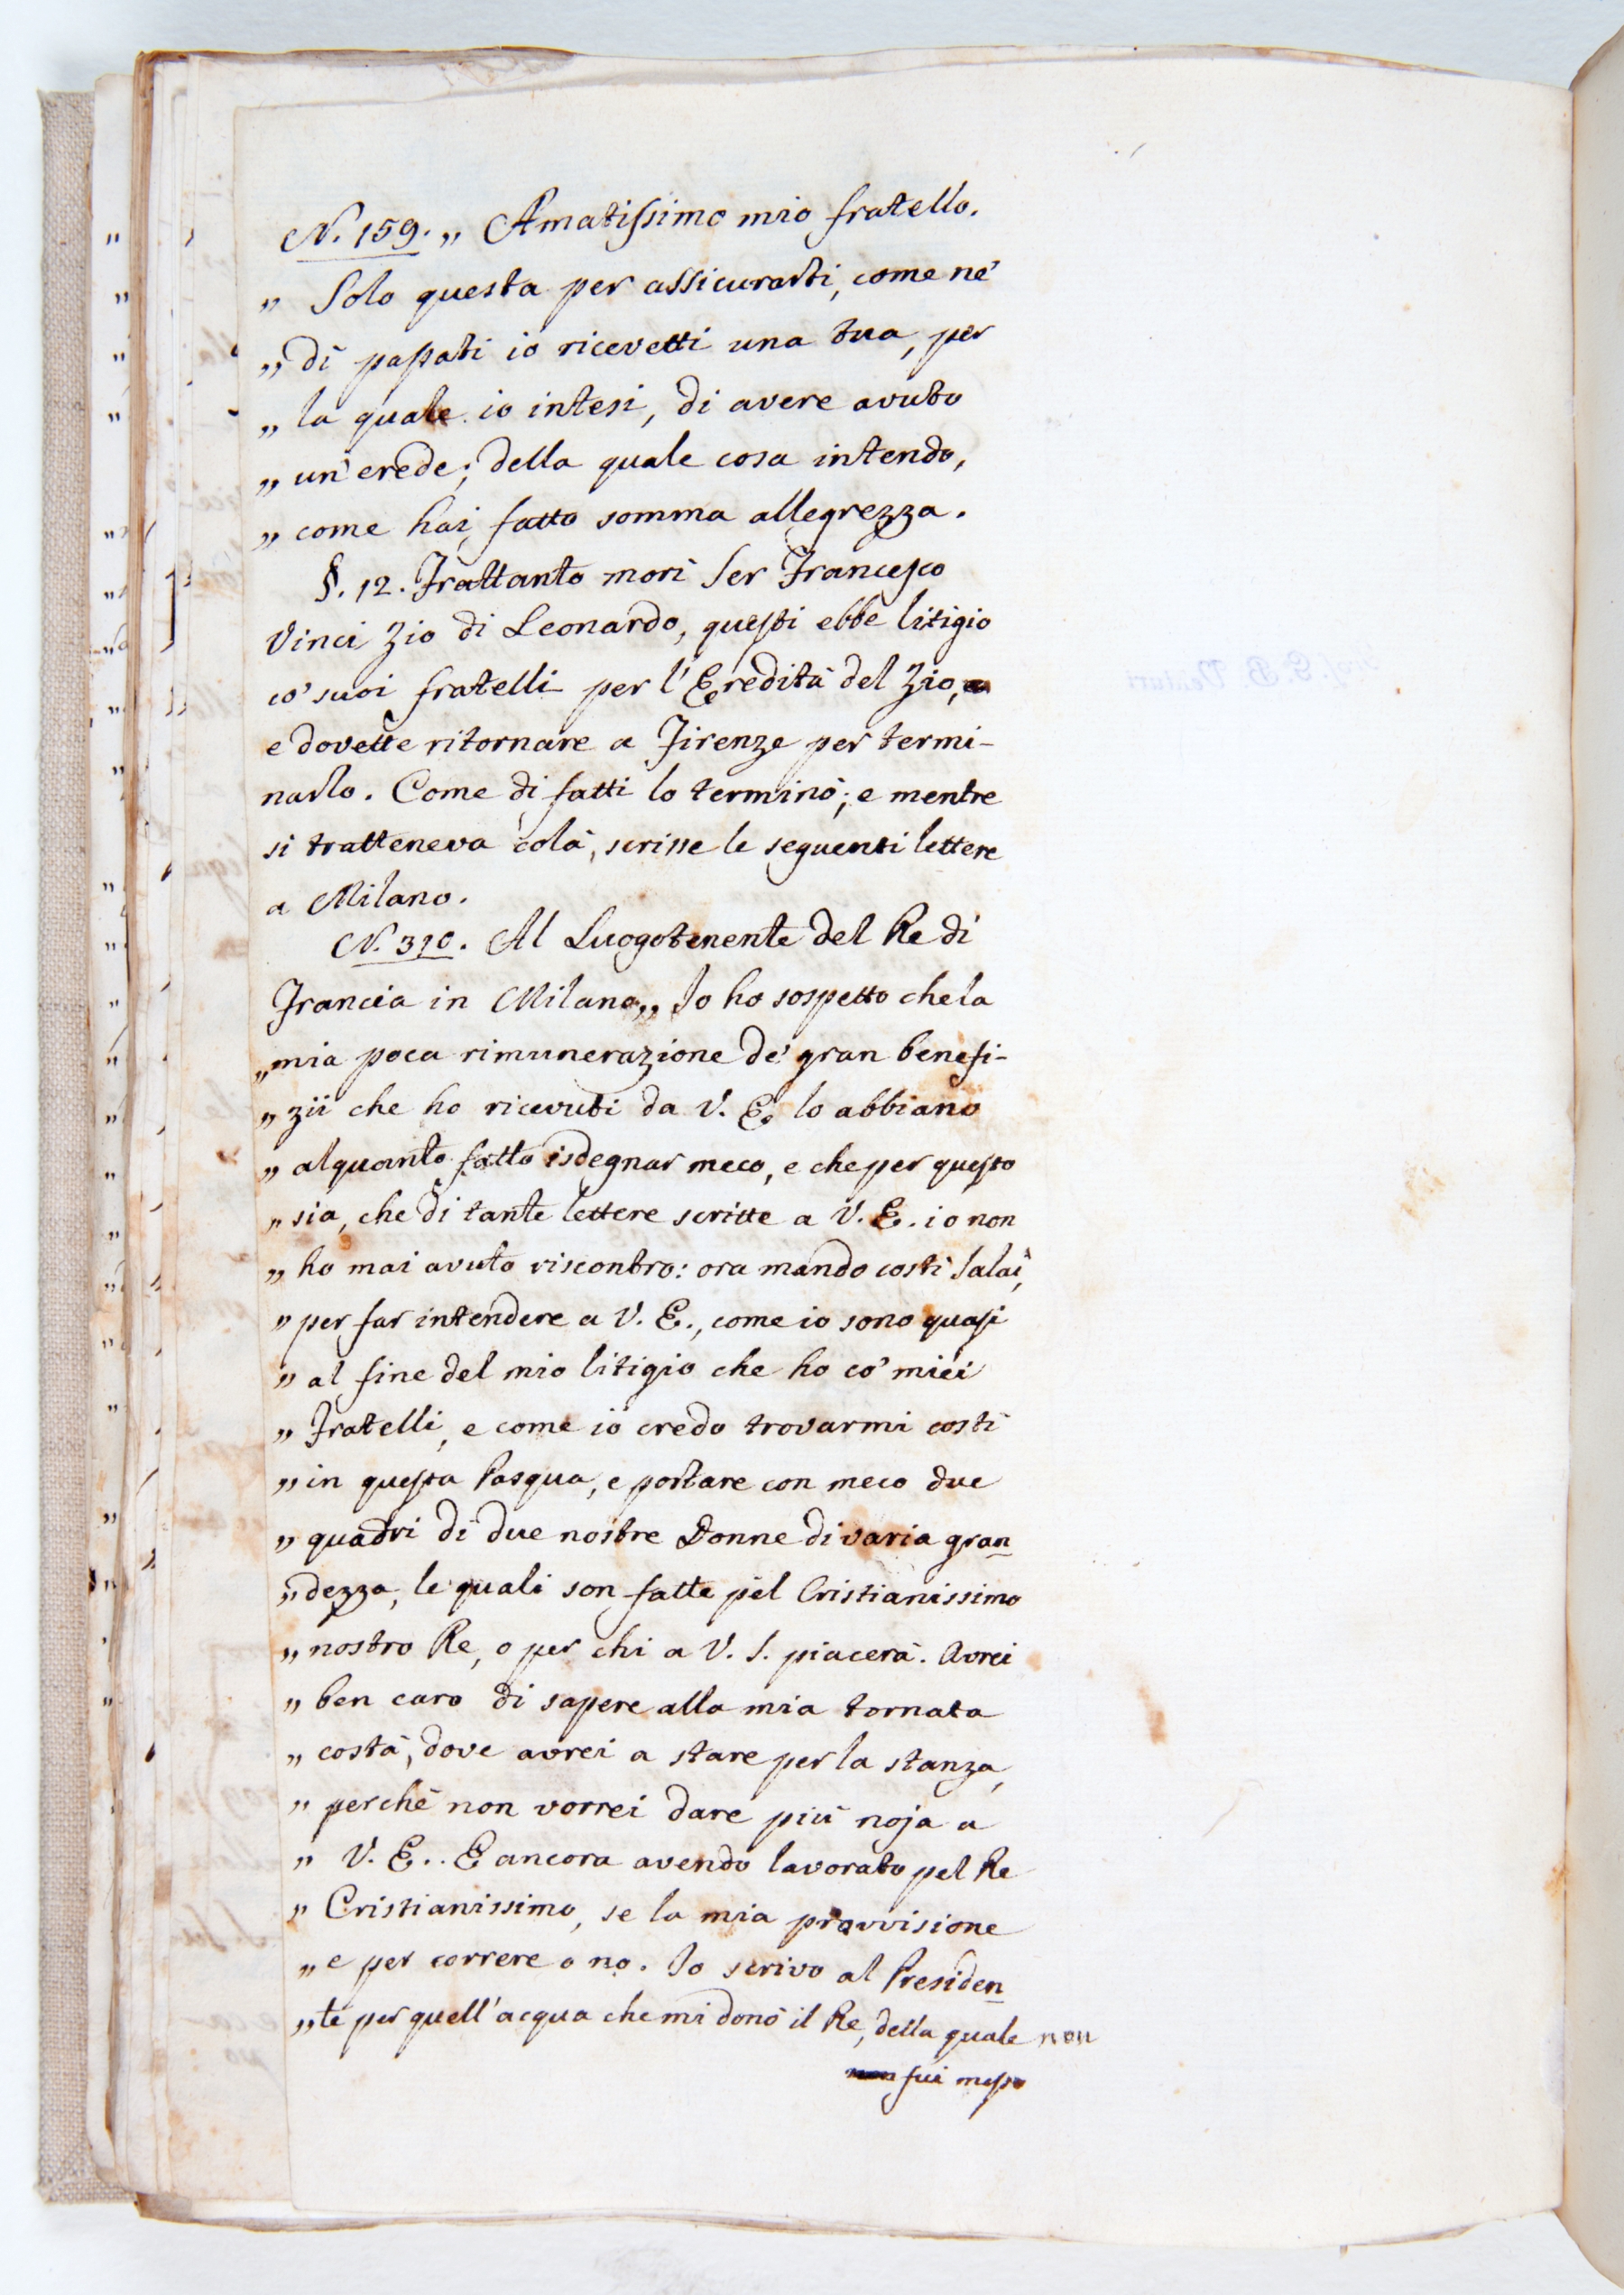 N. 159. „ Amatissimo mio fratello.
„ Solo questa per assicurarti, come ne'
„ dì passati io ricevetti una tua, per
„ la quale io intesi, di avere avuto
„ un' erede; della quale cosa intendo,
„ come hai fatto somma allegrezza.
§. 12. Frattanto morì Ser Francesco
Vinci Zio di Leonardo, questi ebbe litigio
co' suoi fratelli per l'Eredità del Zio,
e dovette ritornare a Firenze per termi-
narlo. Come di fatti lo terminò; e mentre
si tratteneva colà, scrisse le seguenti lettere
a Milano.
N. 310. Al Luogotenente del Re di
Francia in Milano „ Io ho sospetto che la
„ mia poca rimunerazione de' gran benefi-
„ zii che ho ricevuti da V. E. lo abbiano
„ alquanto fatto isdegnar meco, e che per questo
„ sia, che di tante lettere scritte a V. E. io non
„ ho mai avuto riscontro: ora mando costì Salaì,
„ per far intendere a V. E., come io sono quasi
„ al fine del mio litigio che ho co' miei
„ Fratelli, e come io credo trovarmi costì
„ in questa Pasqua, e portare con meco due
„ quadri di due nostre Donne di varia gran
„ dezza, le quali son fatte pel Cristianissimo
„ nostro Re, o per chi a V. S. piacerà. Avrei
„ ben caro di sapere alla mia tornata
„ costà, dove avrei a stare per la stanza,
„ perchè non vorrei dare più noja a
„ V. E.. E ancora avendo lavorato pel Re
„ Cristianissimo, se la mia provvisione
„ e per correre o no. Io scrivo al Presiden
„ te per quell'acqua che mi donò il Re, della quale non
non fui messo